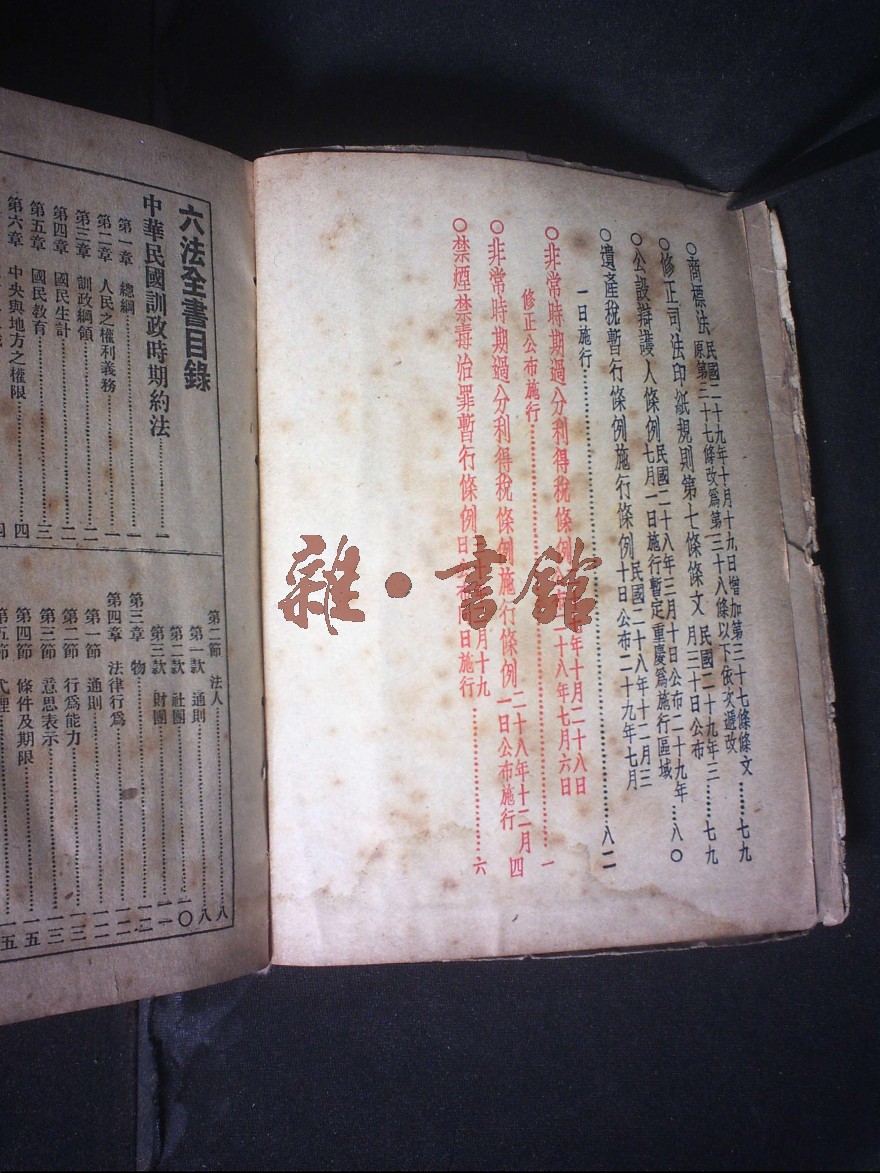 ○商標法 民國二十九年十月十九日增加第三十七條條文 原第三十七條改爲第三十八條以下依次遞改……七九
○修正司法印紙規則第七條條文 民國二十九年三月三十日公布……七九
○公設辯護人條例 民國二十八年三月十日公布二十九年七月一日施行暫定重慶爲施行區域…八〇
○遺產稅暫行條例施行條例 民國二十八年十二月三十日公布二十九年七月
一日施行……八二
○非常時期過分利得稅條例 年十月二十八日 二十八年七月六日
修正公布施行……一
○非常時期過分利得稅條例施行條例 二十八年十二月四日公布施行
○禁煙禁毒治罪暫行條例 月十九日公布同日施行……六
雜·書館
六法全書目錄
中華民國訓政時期約法……一
第一章 總綱……一
第二章 人民之權利義務……一
第三章 訓政綱領……二
第四章 國民生計……二
第五章 國民教育……三
第六章 中央與地方之權限……四
第二節 法人……八
第一款 通則……八
第二款 社團……一〇
第三款 財團……一一
第三章 物……一二
第四章 法律行爲……一二
第一節 通則……一二
第二節 行爲能力……一三
第三節 意思表示……一三
第四節 條件及期限……一五
第五節 代理……一五